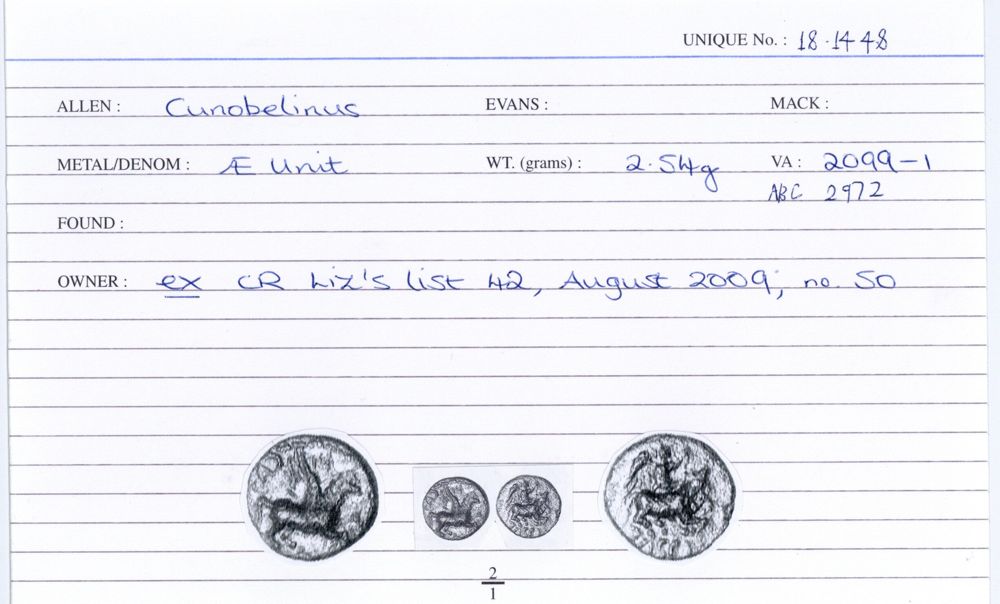 UNIQUE No. : 18.1448
ALLEN : Cunobelinus EVANS : MACK :
METAL/DENOM : Æ Unit WT. (grams) : 2.54g VA : 2099-1
ABC 2972
FOUND :
OWNER : ex CR Liz's list 42, August 2009, no. 50
2
1